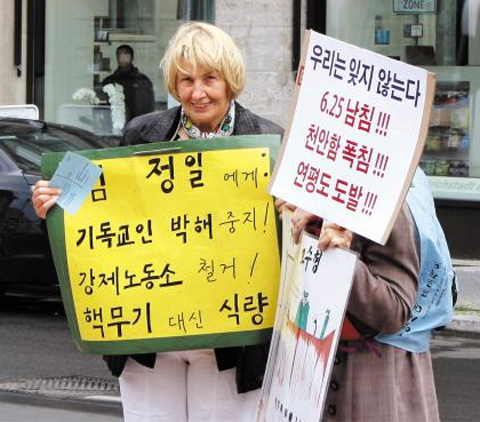 정일 에게:
기독교인 박해 중지!
강제노동소 철거!
핵무기 대신 식량
우리는 잊지 않는다
6.25 남침 !!!
천안함 폭침 !!!
연평도 도발 !!!
ZONE